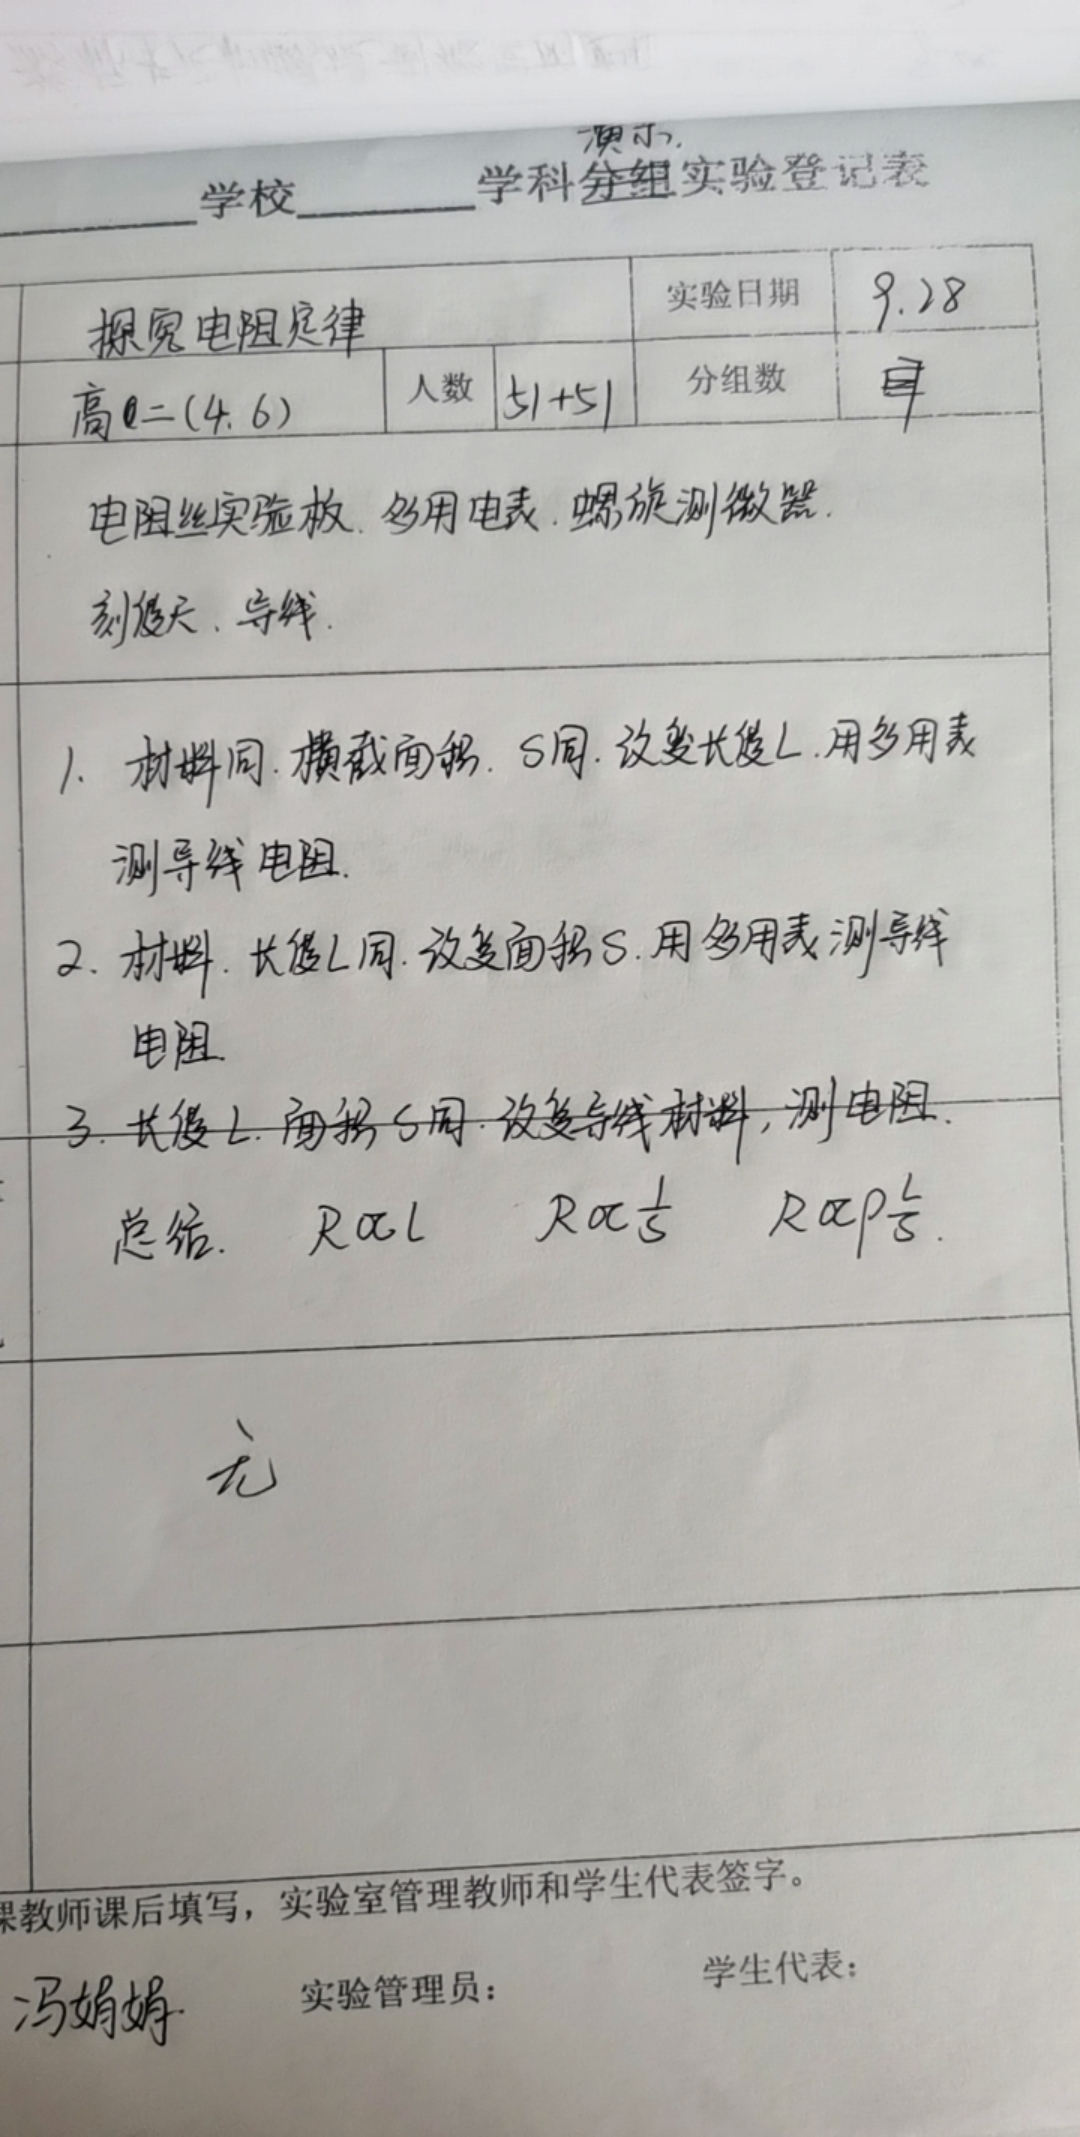 演示.
学校 学科分组实验登记表
探究电阻定律 实验日期 9.28
高二(4.6) 人数 51+51 分组数
电阻丝实验板.多用电表.螺旋测微器.
刻度尺、导线.
1. 材料同.横截面积.S同.改变长度L.用多用表
测导线电阻.
2. 材料.长度L同.改变面积S.用多用表测导线
电阻.
3. 长度L.面积S同.改变导线材料,测电阻.
总结. R∝L R∝1/S R∝ρL/S.
无
课教师课后填写，实验室管理教师和学生代表签字。
冯娟娟 实验管理员： 学生代表：